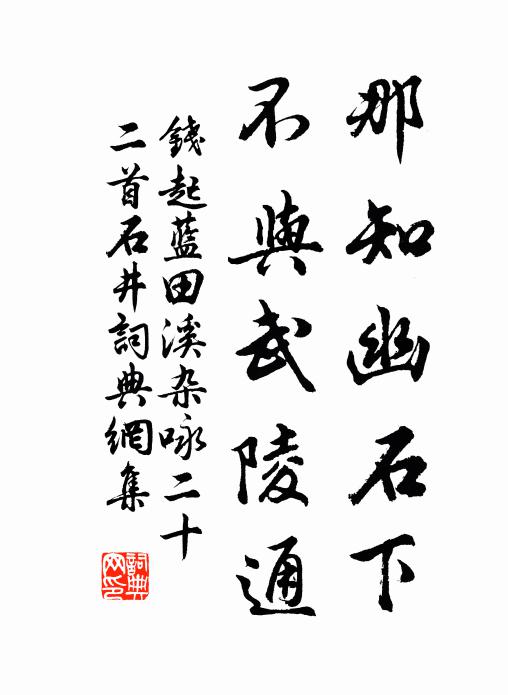 那知幽石下
不與武陵通
錢起藍田溪杂咏二十
二首石井詞典網集
詞典
网印